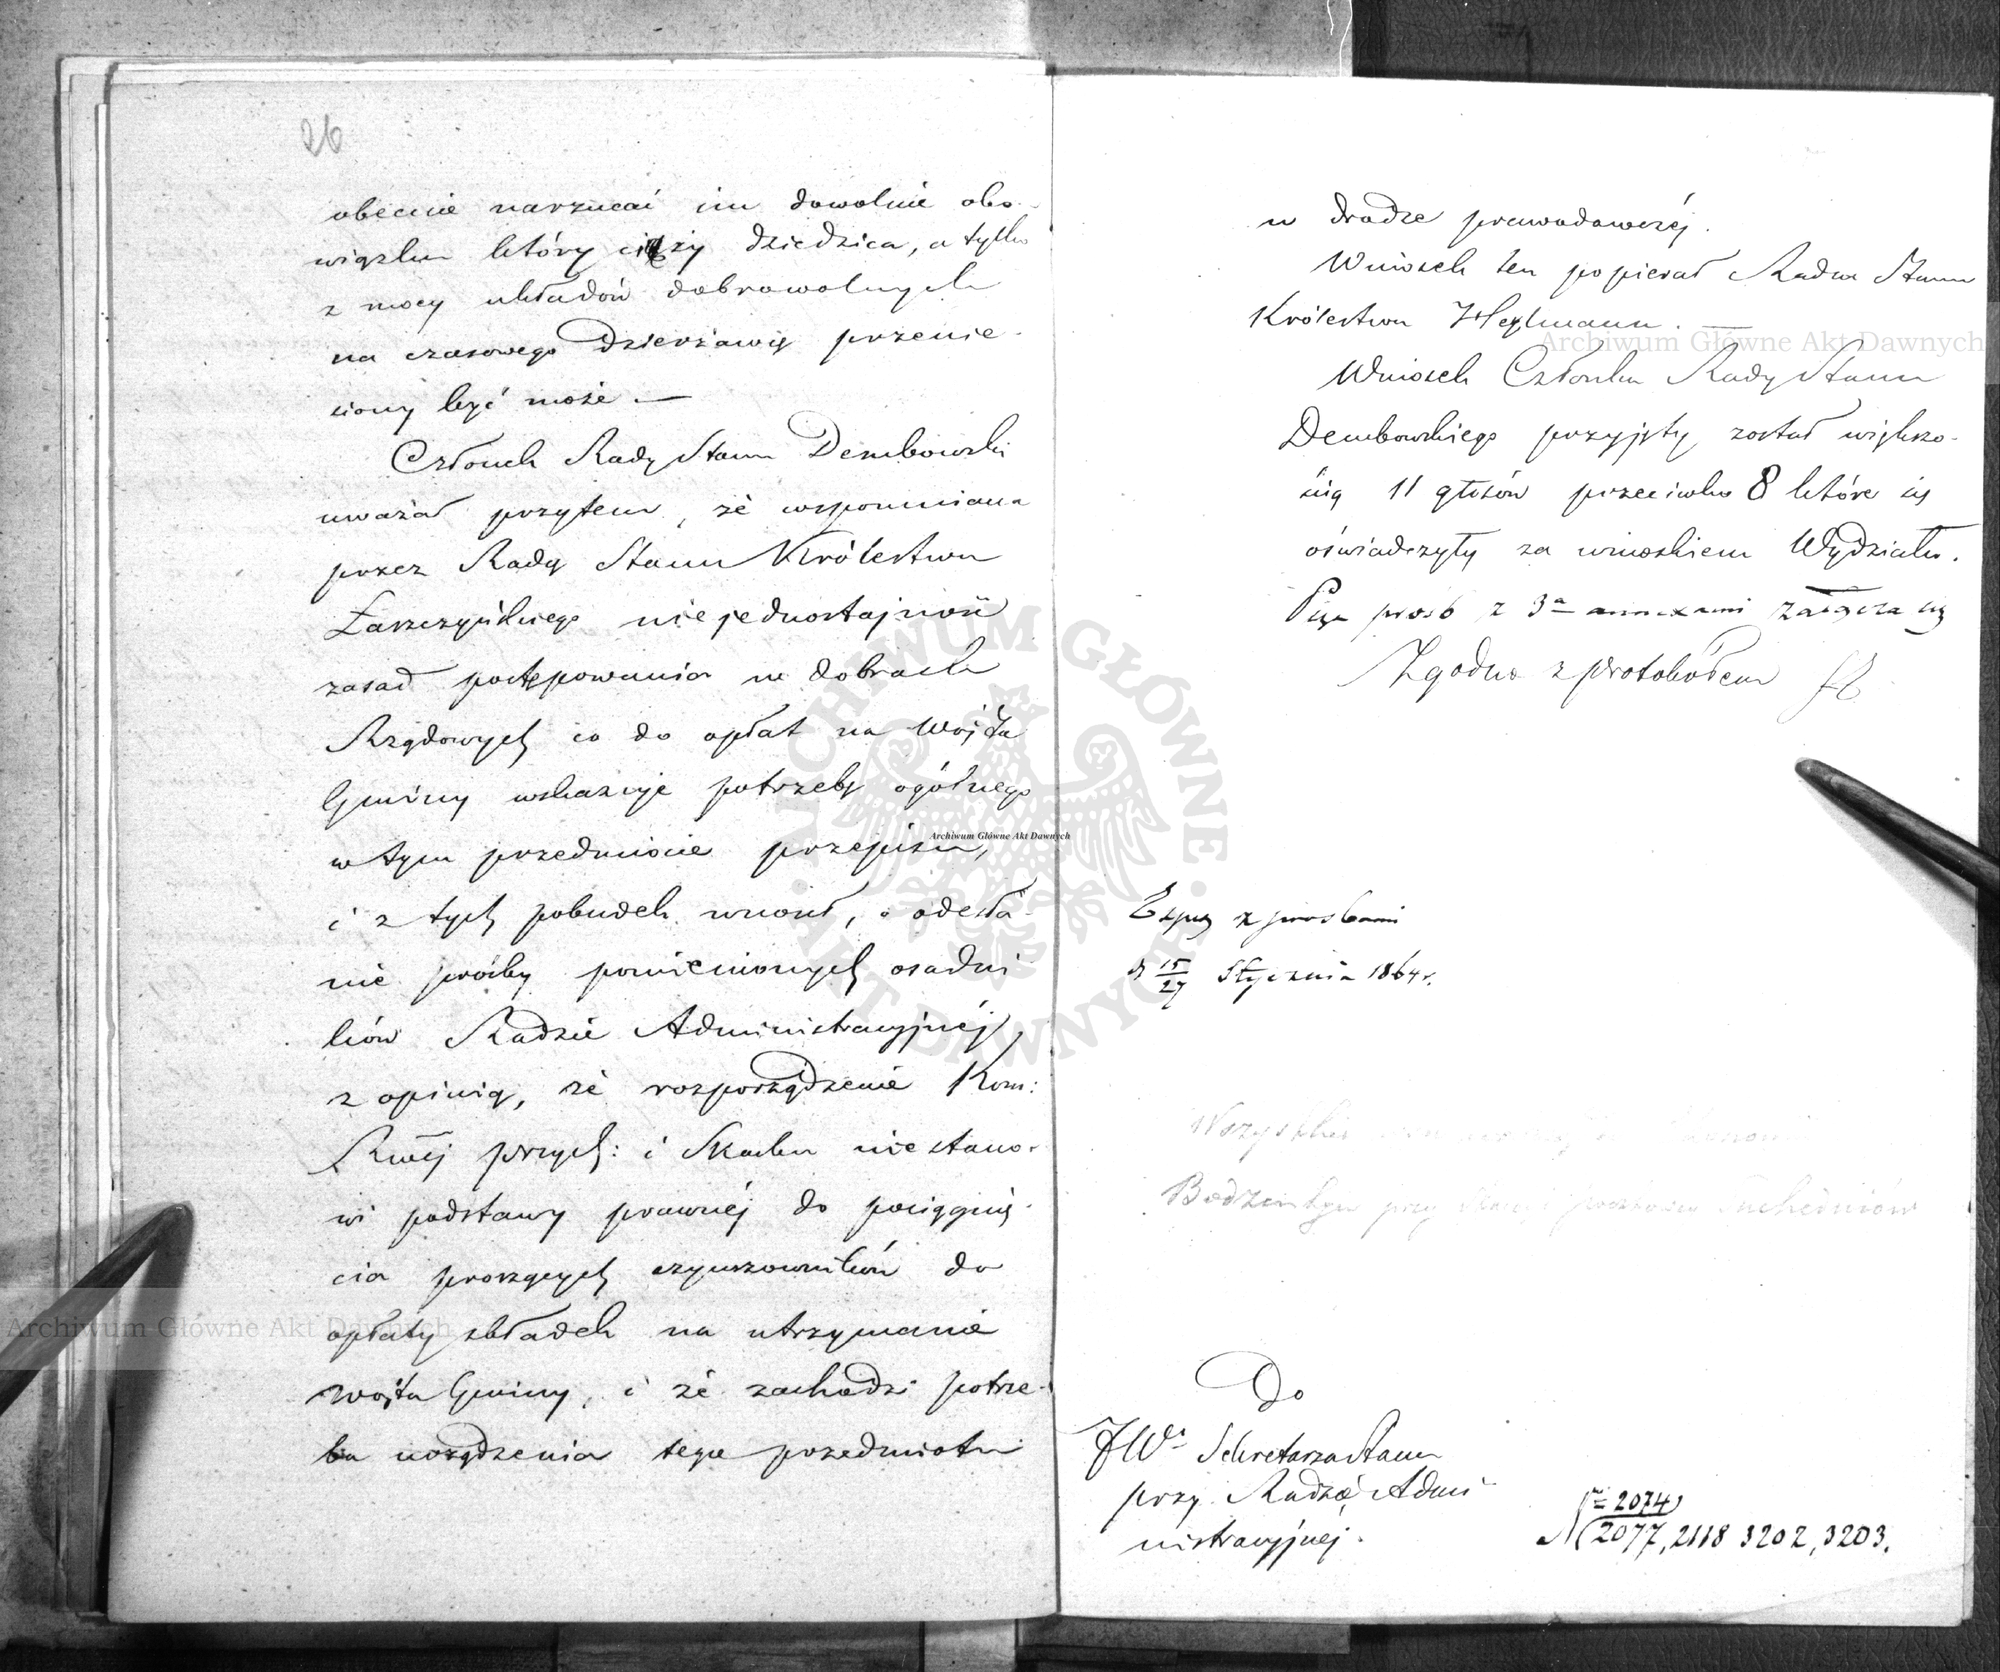 26
obecnie narzucać im dowolnie obo-
wiązku który ciąży dziedzica, a tylko
z mocy układów dobrowolnych
na czasowego Dzierżawcę przenie-
siony być może. —
Członek Rady Stanu Dembowski
uważał przytem, że wspomniana
przez Radcę Stanu Królestwa
Łaszczyńskiego niejednostajność
zasad postępowania w dobrach
Rządowych co do opłat na Wójta
Gminy wskazuje potrzebę ogólnego
w tym przedmiocie przepisu,
i z tych pobudek wnosił, o odesła-
nie prośby pomienionych osadni
ków Radzie Administracyjnéj,
z opinią, że rozporządzenie Kom:
Rząd: przych: i Skarbu nie stano-
wi podstawy prawnéj do pociągnię-
cia proszących czynszowników do
opłaty składek na utrzymanie
Wójta Gminy, i że zachodzi potrze-
ba urządzenia tego przedmiotu
w drodze prawodawczéj.
Wniosek ten popierał Radca Stanu
Królestwa Heylmann.
Wniosek Członka Rady Stanu
Dembowskiego przyjęty został większo-
ścią 11 głosów przeciwko 8 które się
oświadczyły za wnioskiem Wydziału.
Pięć prośb z 3ª annexami załącza się
Zgodno z protokółem
Archiwum Główne Akt Dawnych
Archiwum Główne Akt Dawnych
ARCHIWUM GŁÓWNE
AKT DAWNYCH
Exped z prośbami
d 15/27 Stycznia 1864 r.
Wszystkie
Bodzentyn przy Suchedniów
Archiwum Główne Akt Dawnych
Do
JWº Sekretarza Stanu
przy Radzie Admi
nistracyjnéj.
Nº 2074
2077, 2118 3202, 3203.